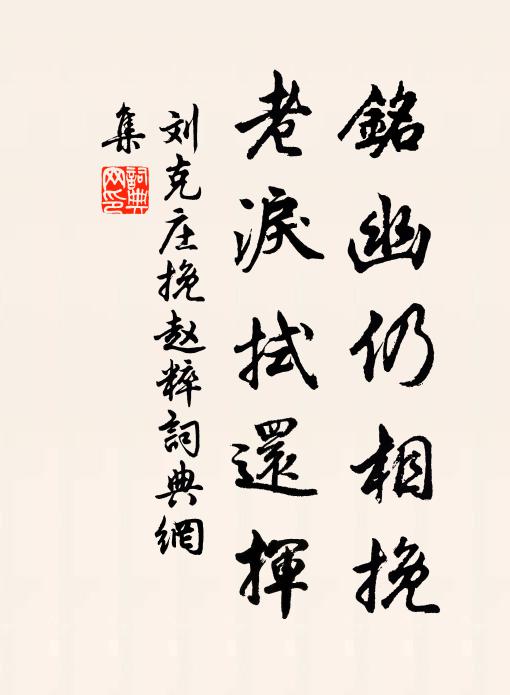 銘幽仍相挽
老淚拭還揮
刘克庄挽赵粹詞典網
集
詞典网印